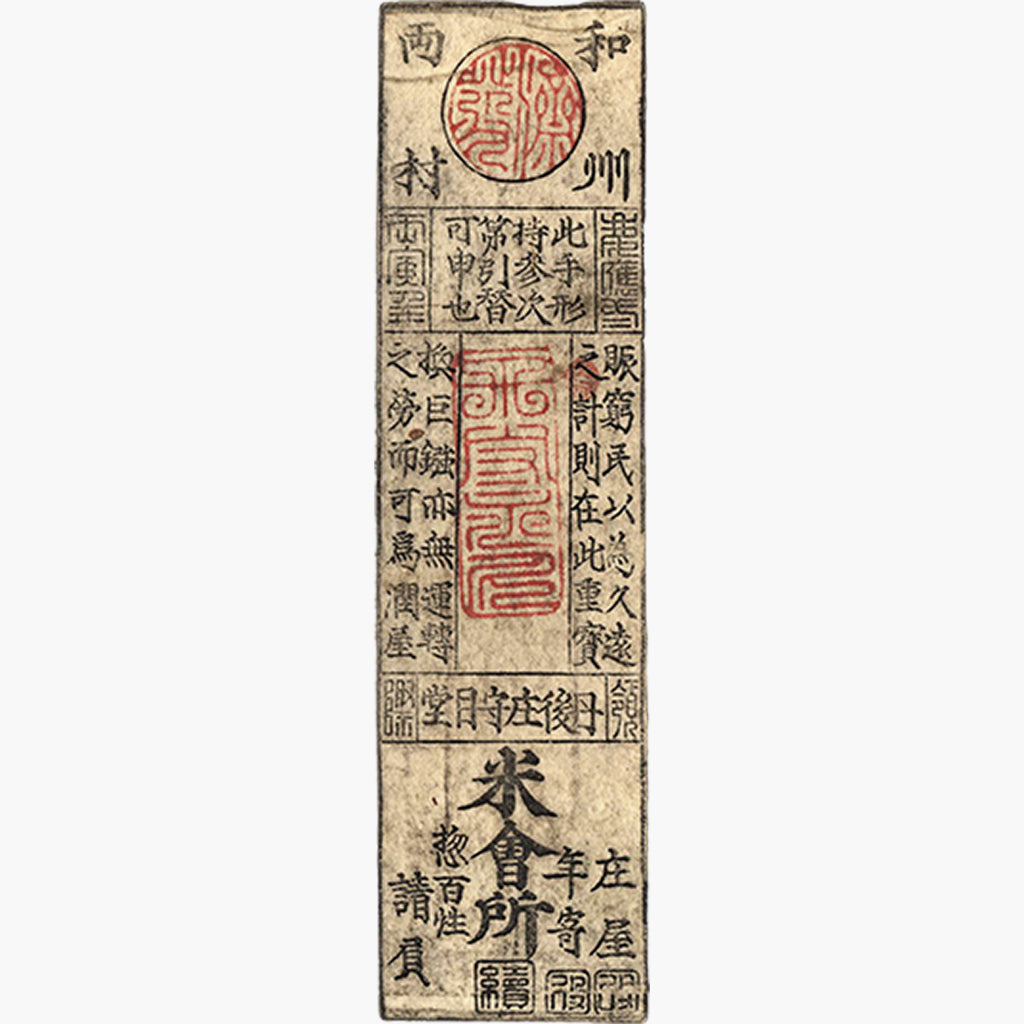 和州
両村
此手形
持参次
第引替
可申也
賑窮民以為久遠
之計則在此重寳
換巨鏹亦無運轉
之労而可為潤屋
丹後庄守目堂
米會所
庄屋
年寄
惣百性
請負
續